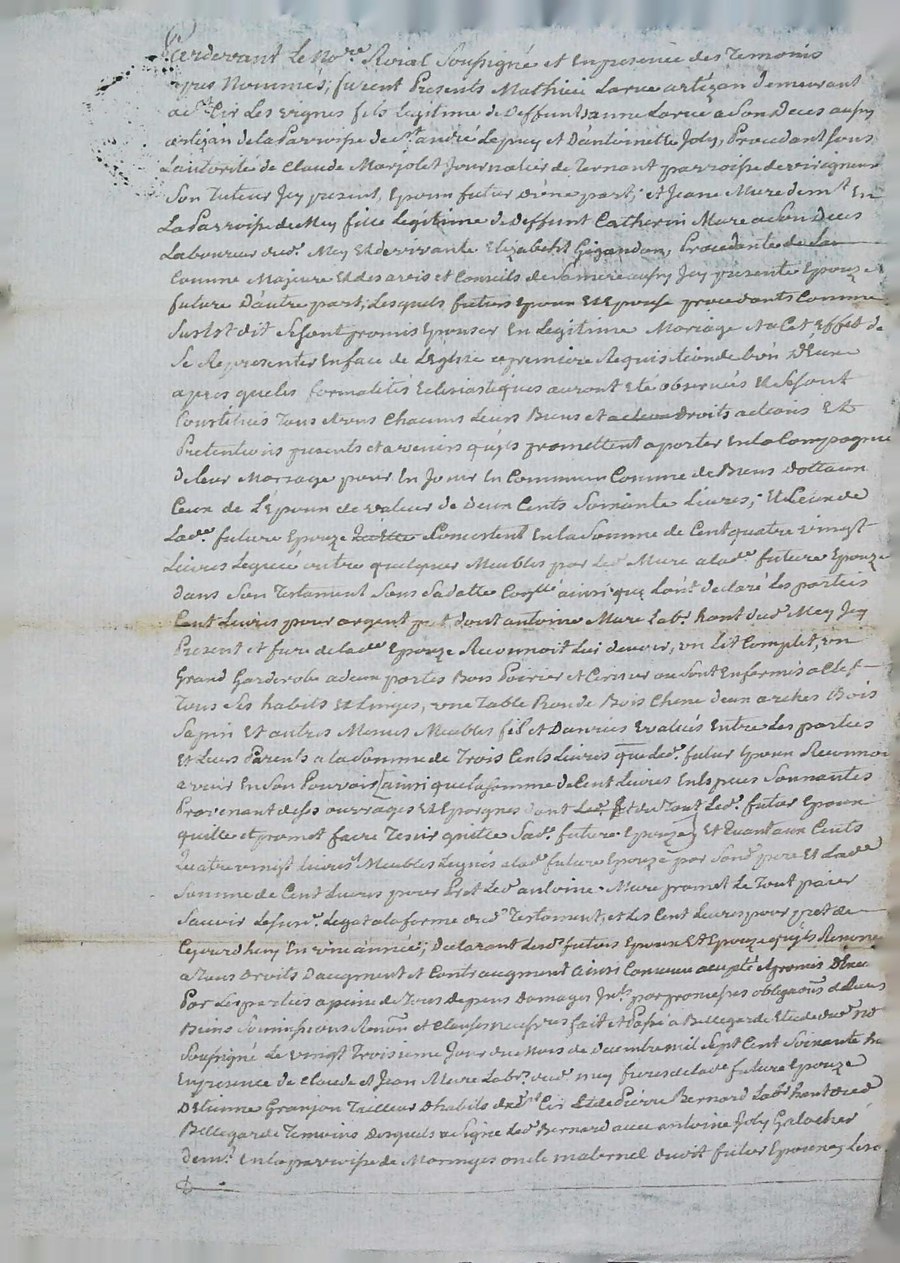 Pardevant Le No.re Roial Soussigné et En presence des Temoins
apres Nommés; furent Presents Mathieu Larue artizan demeurant
a St Cir Les vignes fils legitime de Deffunt anne Larue a Son Deces aussy
artizan de la Parroisse de St andré Le puy et D'antoinette Joly, Procedant Sous
L'autorité de Claude Marjolet Journalier de parroisse de
Son Tuteur Jcy present, Epoux futur D'une part; et Jeane Mure dem.t En
La Parroisse de Mey fille Legitime de Deffunt Catherin Mure a Son Deces
Laboureur dud. Mey Et de vivante Elizabeth Procedante de
Comme Majeure Et des avis et Conseils de Sa mere aussy Jcy presente Epouze
future D'autre part; Lesquels futurs Epoux Et Epouse procedants Comme
Susdit dit Se sont promis Epouser En Legitime Mariage et a Cet Effet de
Se Representer En face de L'Eglise a premiere Requisition de L'un D'eux
apres que les formalités Eclesiastiques auront Eté observées Et Se sont
Constitués Tous et uns Chacuns Leurs Biens et Droits actions Et
Pretentions presents et avenirs qu'ils promettent aporter En la Compagnie
de leur Mariage pour En Jouir En Commun Comme de Biens Dottaux
Ceux de L'Epoux de valeur de Deux Cents Soixante Livres; Et Ceux de
Lad.e future Epouze Concistent En la Somme de Cent quatre vingt
Livres Legués outre quelques Meubles par led. Mure a lad.e future Epouze
dans Son Testament Sous Sa datte ainsi que L'ont declaré Les parties
Cent Livres pour argent pret dont antoine Mure Lab.r dud. Mey Jcy
Present et frere de lad.e Epouze Reconnoit Lui devoir, un Lit Complet, un
Grand Garderobe a deux portes Bois Poirier et Cerisier ou Sont Enfermés a Clef
Tous Ses habits Et Linges, une Table Ronde Bois Chene deux arches Bois
Sapin Et autres Menus Meubles fil et Danrées Evalués Entre Les parties
Et Leurs Parents a la Somme de Trois Cents Livres que led. futur Epoux Reconnoi
avoir En Son Pouvoir ainsi que la Somme de Cent Livres En Especes Sonnantes
Provenant de Ses ouvrages Et Epargnes dont et du Tout Led. futur Epoux
quitte et promet faire Tenir quitte Sad.e future Epouze, Et Quant aux Cents
Quatre vingt Livres Meubles Legués a lad.e future Epouze par Sond. pere Et Lad.e
Somme de Cent Livres pour Pret Led. antoine Mure promet Le Tout païer
Sauoir Le Susd. Legat a la forme dud. Testament, et Les Cent Livres pour pret de
Cejourd'huy En une année; Declarant Lesd. futurs Epoux Et Epouze qu'ils Renonce
a Tous Droits D'augment et Contraugment ainsi Convenu accepté et promis
Par Les parties a peine de Tous depens Domages Int.s par promesses obligaons de Leurs
Biens Soumissions Renon et Clauses fait et Passé a Bellegarde Etude dud. no
Soussigné Le vingt Troisieme Jour du Mois de Decembre mil Sept Cent Soixante
En presence de Claude et Jean Mure Lab.rs dud. Mey freres de lad.e future Epouze
D'Etienne Granjon Tailleur D'habits dud. St Cir Et de Pierre Bernard Lab.r dud.
Bellegarde Temoins Desquels a Signé Led. Bernard avec antoine Joly
dem.t En la parroisse de Maringes oncle maternel dudit futur Epoux